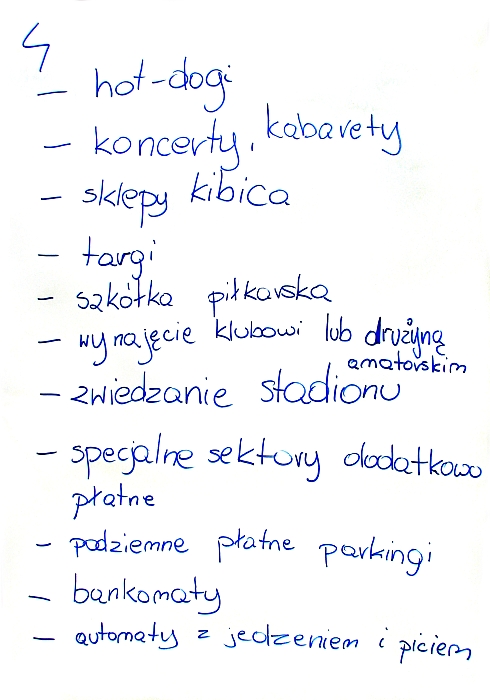 4
- hot-dogi
- koncerty, kabarety
- sklepy kibica
- targi
- szkółka piłkarska
- wynajęcie klubowi lub drużyną
amatorskim
- zwiedzanie stadionu
- specjalne sektory dodatkowo
płatne
- podziemne płatne parkingi
- bankomaty
- automaty z jedzeniem i piciem